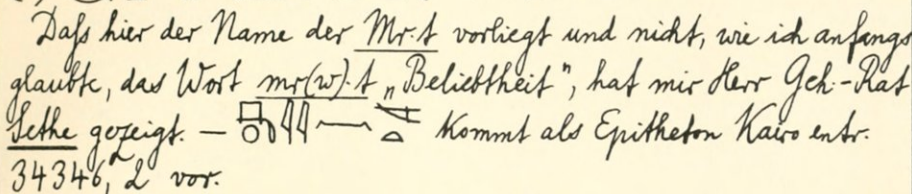 Daſs hier der Name der Mr.t vorliegt und nicht, wie ich anfangs
glaubte, das Wort mr(w).t „Beliebtheit", hat mir Herr Geh.-Rat
Sethe gezeigt. — kommt als Epitheton Kairo entr.
34346, 2 vor.